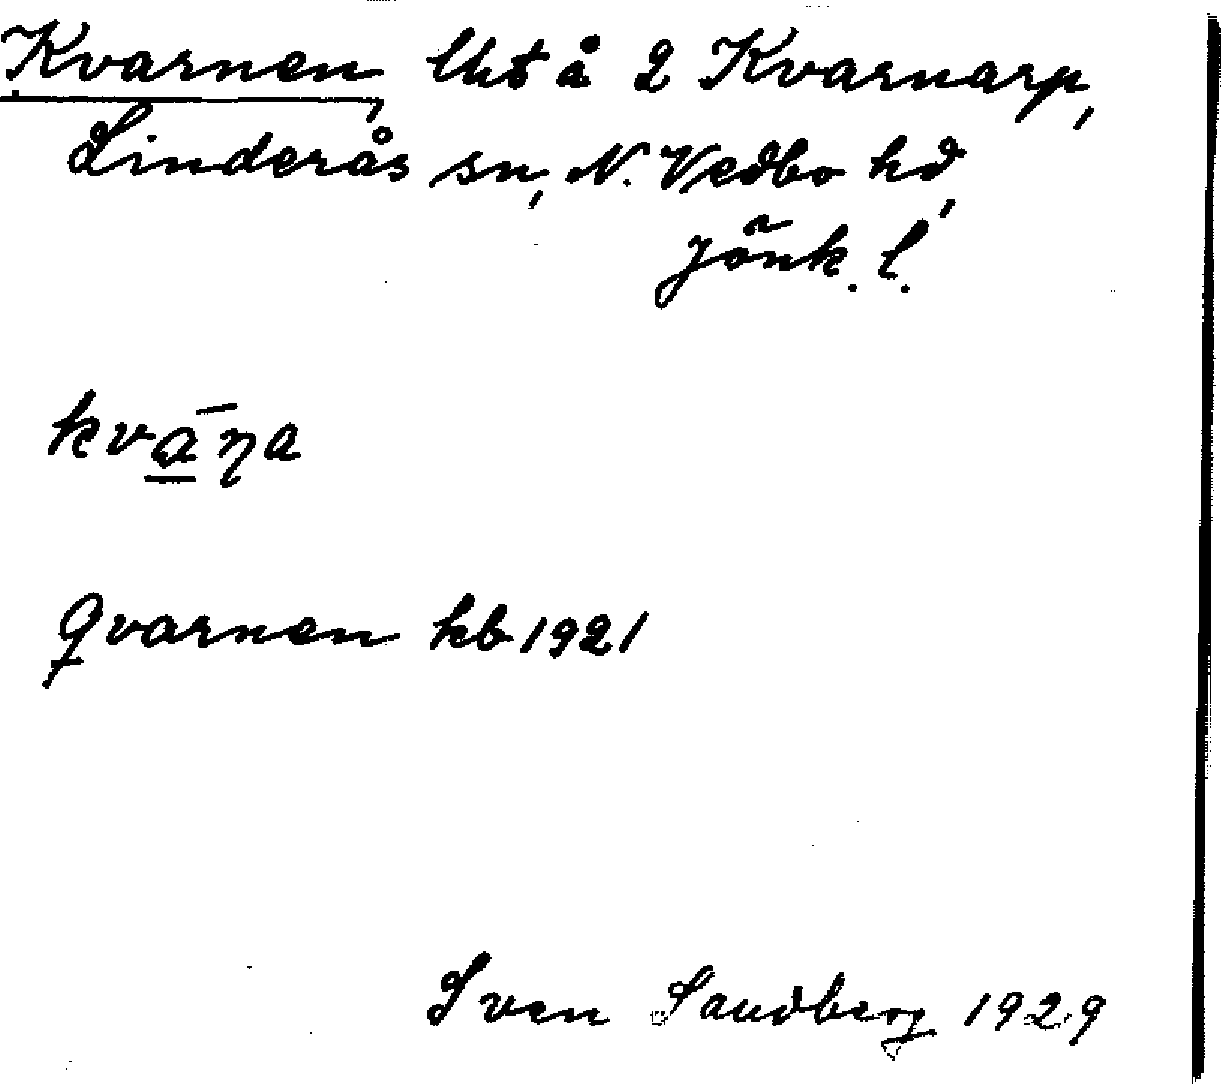 Kvarnen, lht å 2 Kvarnarp,
Linderås sn, N. Vedbo hd,
Jönk. l.
kvą̄ɳa
Qvarnen kb 1921
Sven Sandberg 1929